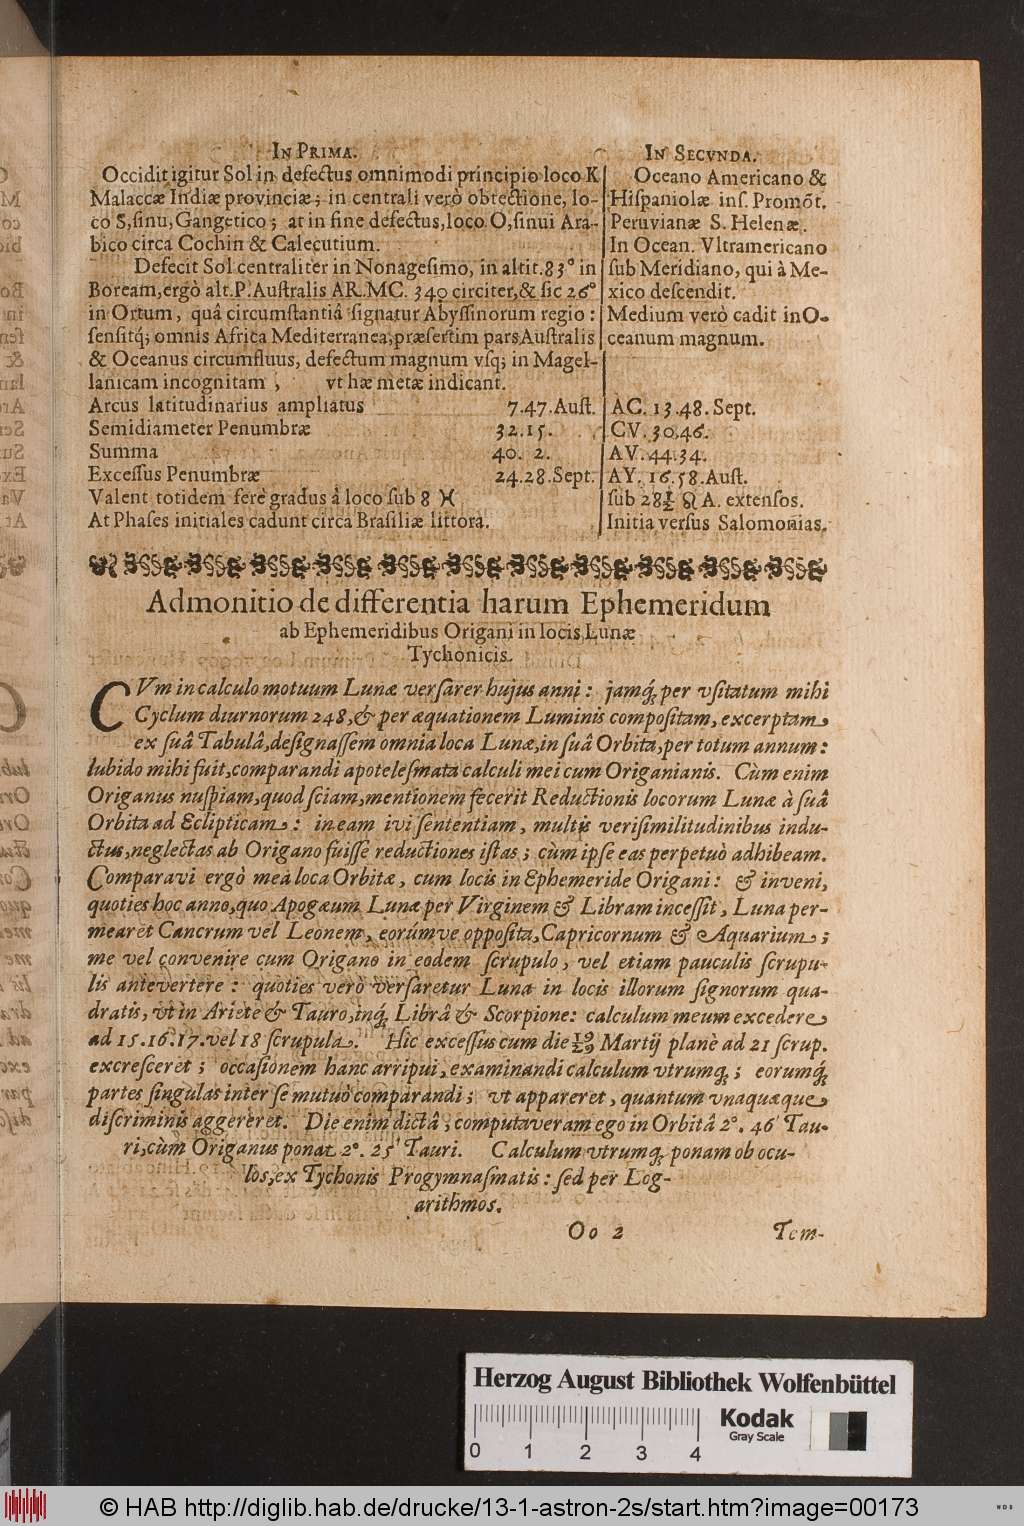 IN PRIMA.
Occidit igitur Sol in defectus omnimodi principio loco K
Malaccæ Indiæ provinciæ; in centrali verò obtectione, lo-
co S, sinu, Gangetico; at in fine defectus, loco O, sinui Ara-
bico circa Cochin & Calecutium.
Defecit Sol centraliter in Nonagesimo, in altit. 83° in
Boream, ergò alt. P. Australis AR. MC. 340 circiter, & sic 26°
in Ortum, quâ circumstantiâ signatur Abyssinorum regio:
sensitq; omnis Africa Mediterranea, præsertim pars Australis
& Oceanus circumfluus, defectum magnum vsq; in Magel-
lanicam incognitam, vt hæ metæ indicant.
Arcus latitudinarius ampliatus 7.47. Aust.
Semidiameter Penumbræ 32.15.
Summa 40. 2.
Excessus Penumbræ 24.28. Sept.
Valent totidem ferè gradus à loco sub 8 ♓
At Phases initiales cadunt circa Brasiliæ littora.
IN SECVNDA.
Oceano Americano &
Hispaniolæ ins. Promõt.
Peruvianæ S. Helenæ.
In Ocean. Vltramericano
sub Meridiano, qui à Me-
xico descendit.
Medium verò cadit in O-
ceanum magnum.
AC. 13.48. Sept.
CV. 30.46.
AV. 44.34.
AY. 16.58. Aust.
sub 28½ ♌ A. extensos.
Initia versus Salomonias.
Admonitio de differentia harum Ephemeridum
ab Ephemeridibus Origani in locis Lunæ
Tychonicis.
CVm in calculo motuum Lunæ versarer hujus anni: jamq; per vsitatum mihi
Cyclum diurnorum 248, & per æquationem Luminis compositam, excerptam
ex suâ Tabulâ, designassem omnia loca Lunæ, in suâ Orbita, per totum annum:
lubido mihi fuit, comparandi apotelesmata calculi mei cum Origanianis. Cùm enim
Origanus nuspiam, quod sciam, mentionem fecerit Reductionis locorum Lunæ à suâ
Orbita ad Eclipticam: in eam ivi sententiam, multis verisimilitudinibus indu-
ctus, neglectas ab Origano fuisse reductiones istas; cùm ipse eas perpetuò adhibeam.
Comparavi ergò mea loca Orbitæ, cum locis in Ephemeride Origani: & inveni,
quoties hoc anno, quo Apogæum Lunæ per Virginem & Libram incessit, Luna per-
mearet Cancrum vel Leonem, eorúmve opposita, Capricornum & Aquarium;
me vel convenire cum Origano in eodem scrupulo, vel etiam pauculis scrupu-
lis antevertere: quoties verò versaretur Luna in locis illorum signorum qua-
dratis, vt in Ariete & Tauro, inq; Librâ & Scorpione: calculum meum excedere
ad 15.16.17. vel 18 scrupula. Hic excessus cum die 19/29 Martij planè ad 21 scrup.
excresceret; occasionem hanc arripui, examinandi calculum vtrumq; eorumq;
partes singulas inter se mutuò comparandi; vt appareret, quantum vnaquæque
discriminis aggereret. Die enim dictâ, computaveram ego in Orbitâ 2°. 46' Tau-
ri, cùm Origanus ponat 2°. 25' Tauri. Calculum vtrumq; ponam ob ocu-
los, ex Tychonis Progymnasmatis: sed per Log-
arithmos.
Oo 2 Tem-
Herzog August Bibliothek Wolfenbüttel
Kodak
Gray Scale
0 1 2 3 4
© HAB http://diglib.hab.de/drucke/13-1-astron-2s/start.htm?image=00173